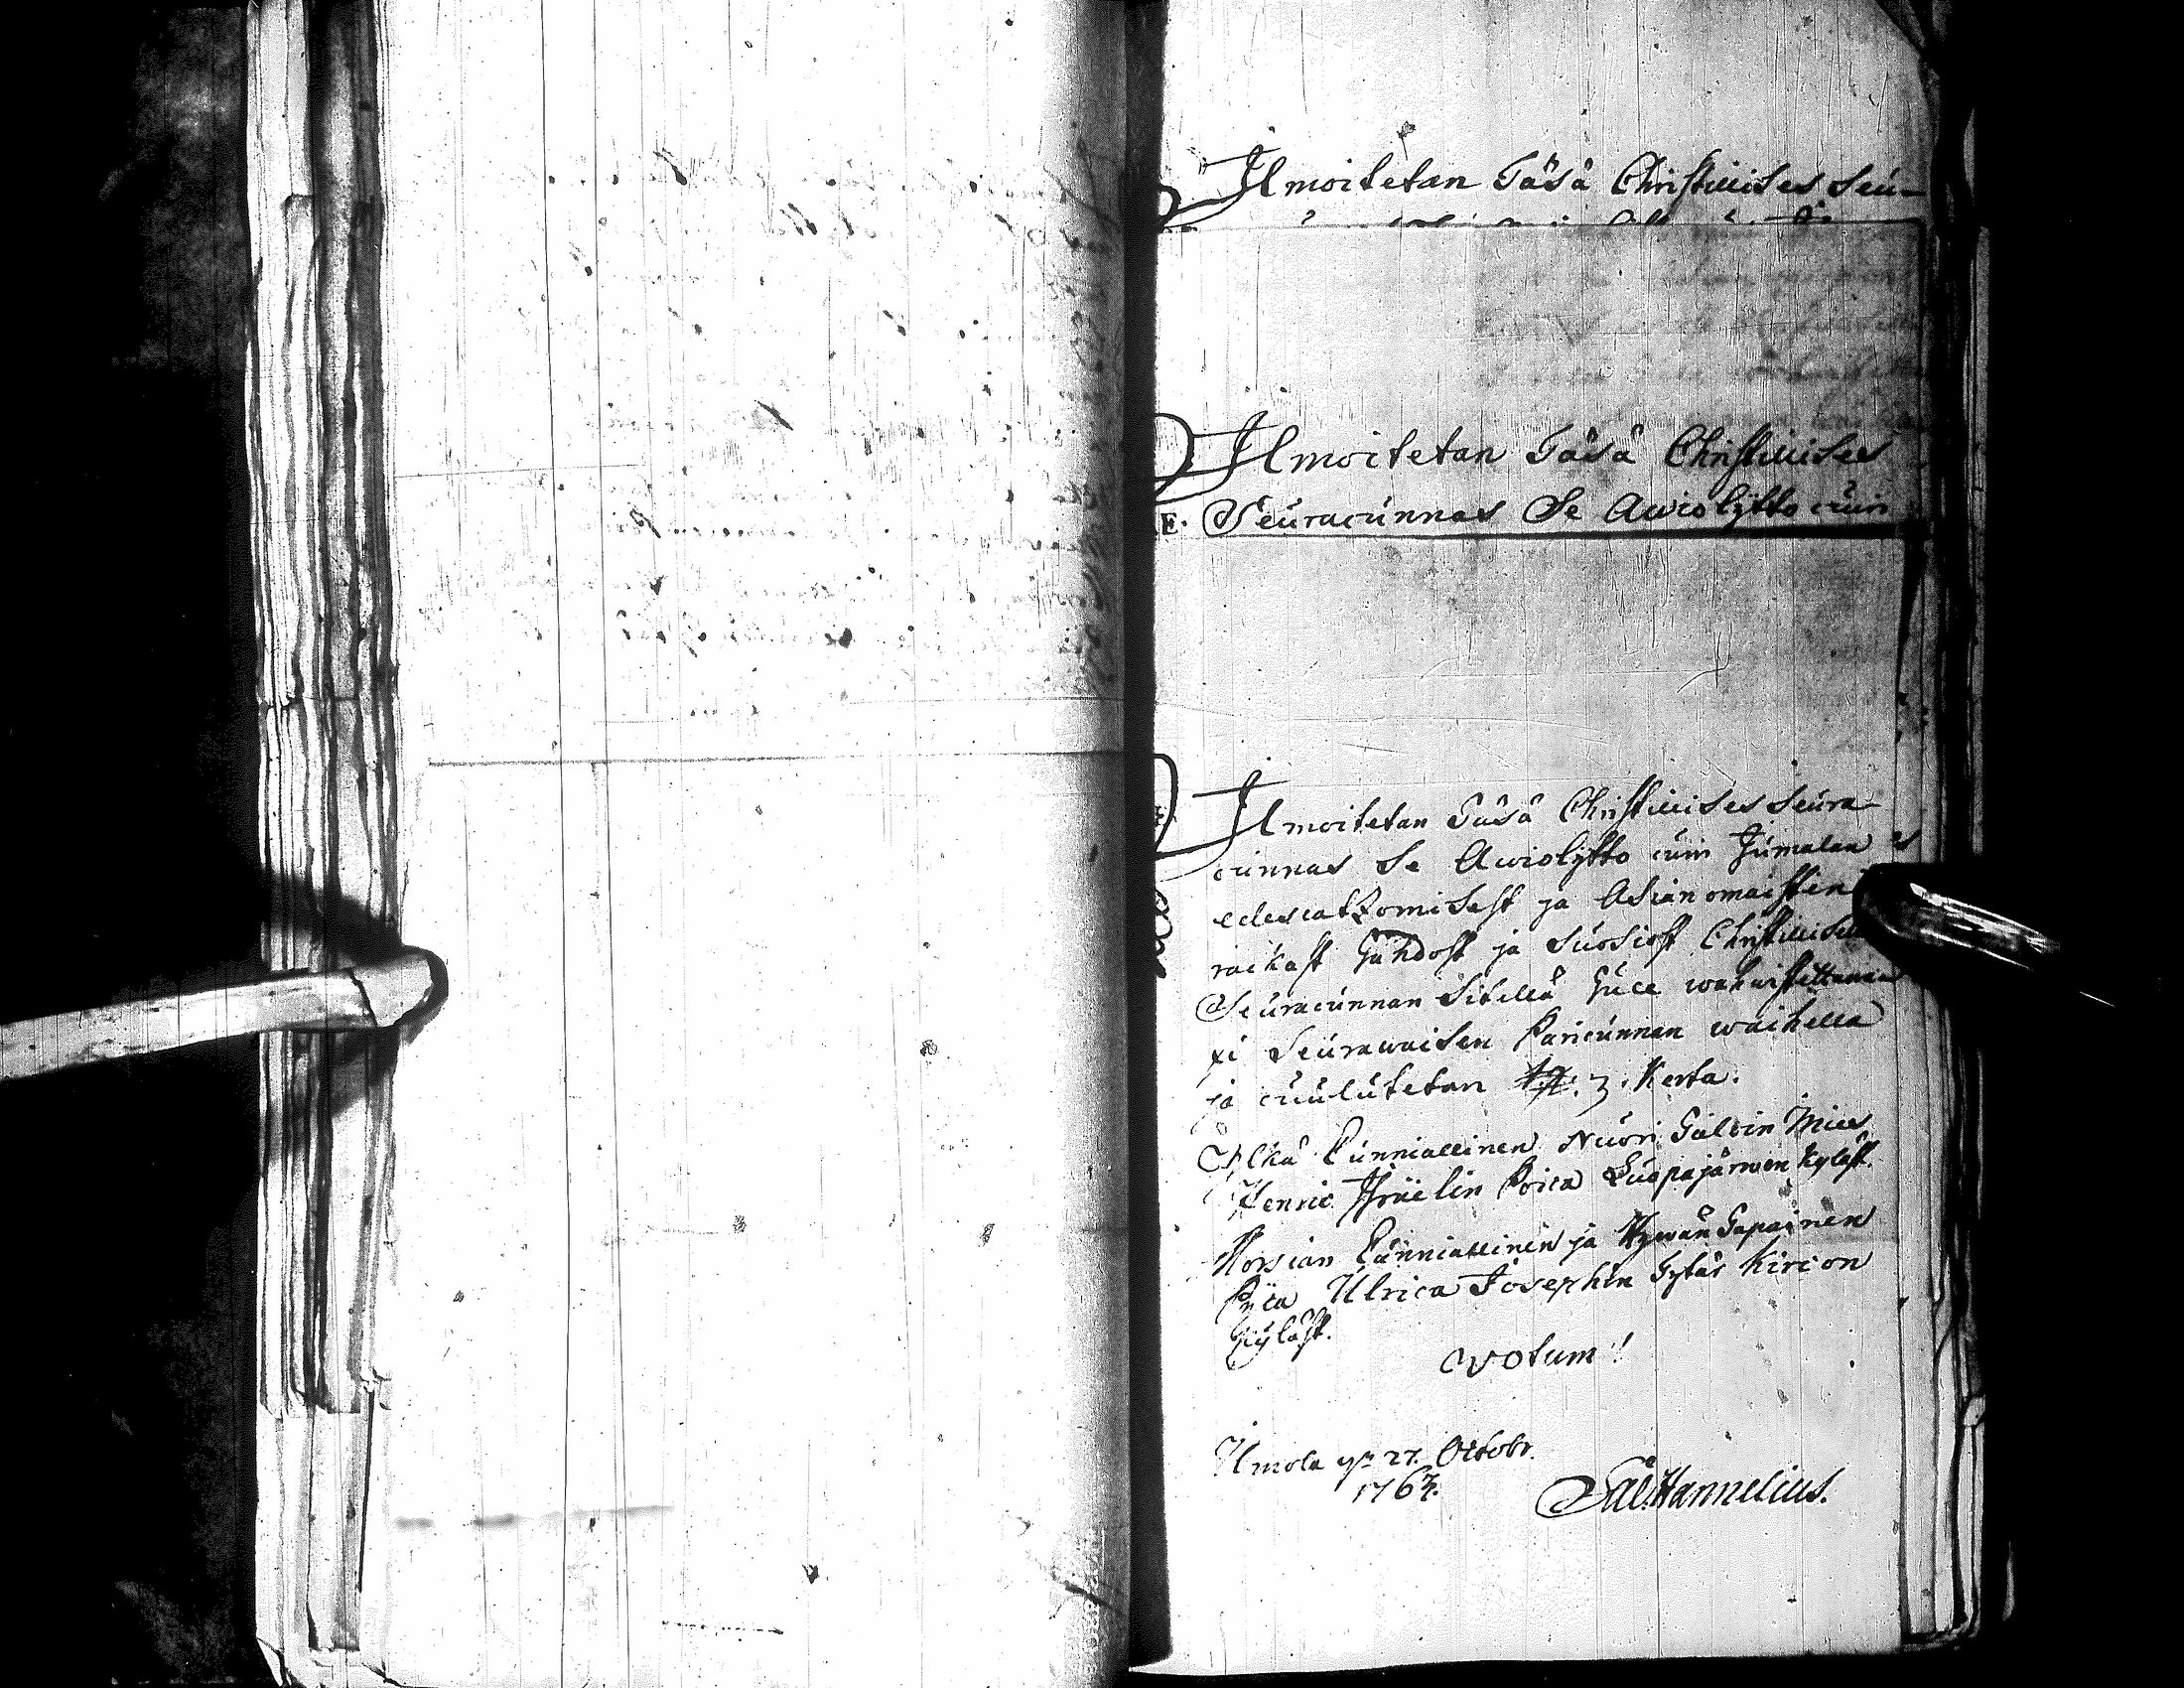 Ilmoitetan Täsä Christilises Seu-
Ilmoitetan Täsä Christilises
E. Seuracunnas Se Awiolijtto cuin
Ilmoitetan Täsä Christilises Seura
cunnas Se Awiolijtto cuin Jumalan
edescatzomisest ja Asianomaisten
rackast Tahdost ja Suosiost Christilisen
Seuracunnan Sitellä Tule wahwistettawa
xi Seurawaisen Paricunnan waihella
ja cuulutetan 3. Kerta.
Ylkä Cunniallinen Nuori Talon Mies
Henric Israelin Poica Luopajärwen Kyläst.
Morsian Cunniallinen ja Hywän Tapainen
Pijca Ulrica Josephin Tytär Kircon
Kyläst.
Votum!
Ilmola 27. Octobr.
1763.
Sal. Hannelius.